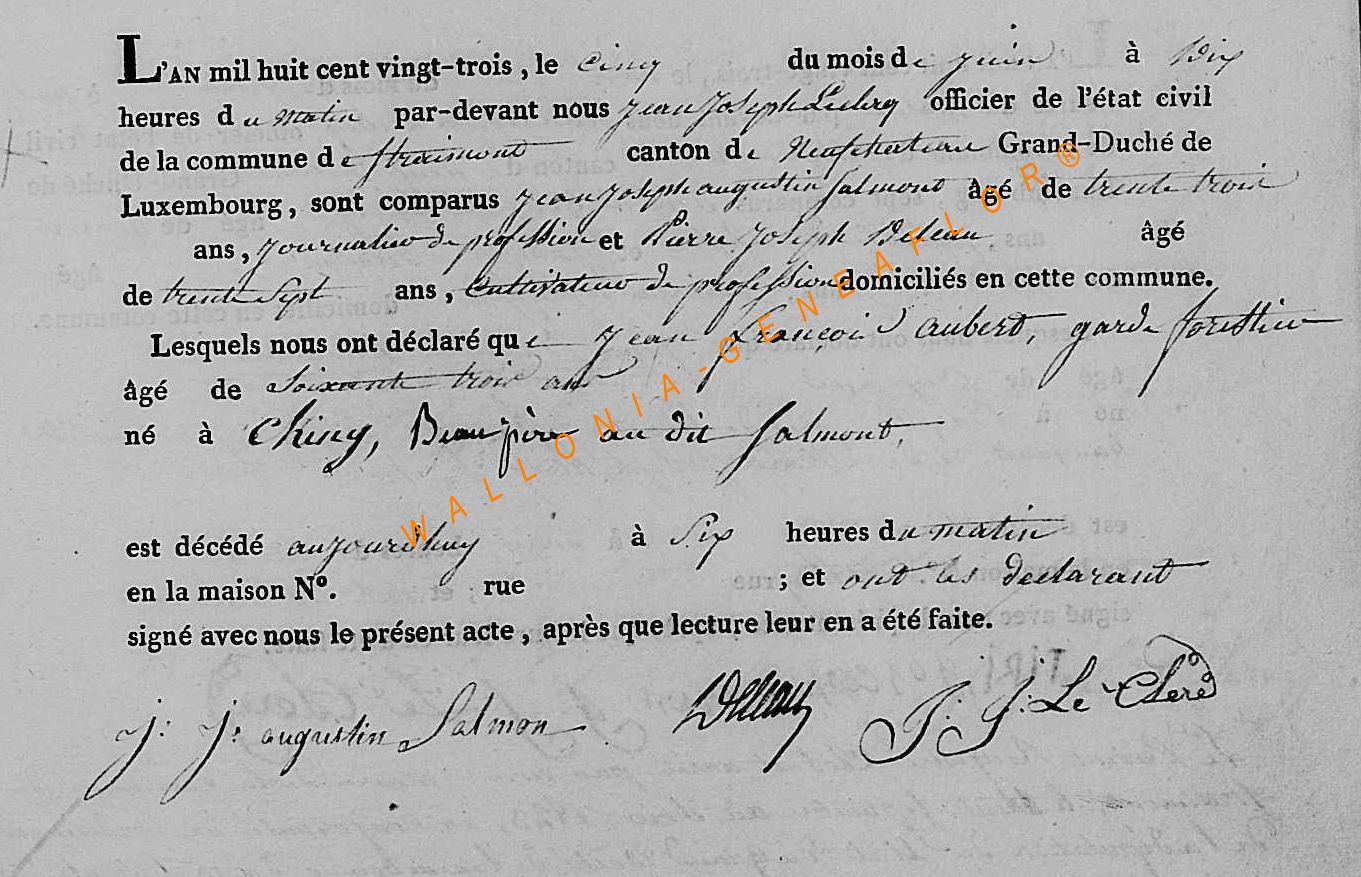 L'AN mil huit cent vingt-trois, le cinq du mois de juin à Dix
heures du matin par-devant nous Jean Joseph Leclerq officier de l'état civil
de la commune de Straimont canton de Neufchateau Grand-Duché de
Luxembourg, sont comparus Jean Joseph augustin Salmont âgé de trente trois
ans, Journalier de profession et Pierre Joseph âgé
de trente Sept ans, Cultivateur de profession domiciliés en cette commune.
Lesquels nous ont déclaré que Jean François aubert, garde forestier
âgé de Soixante trois ans
né à Chiny, Beau père au dit Salmont,
est décédé aujourdhuy à Six heures du matin
en la maison N°. rue ; et ont les declarant
signé avec nous le présent acte, après que lecture leur en a été faite.
J: J: augustin Salmon J: J: Le Clere
WALLONIA-GENEAFLOR®